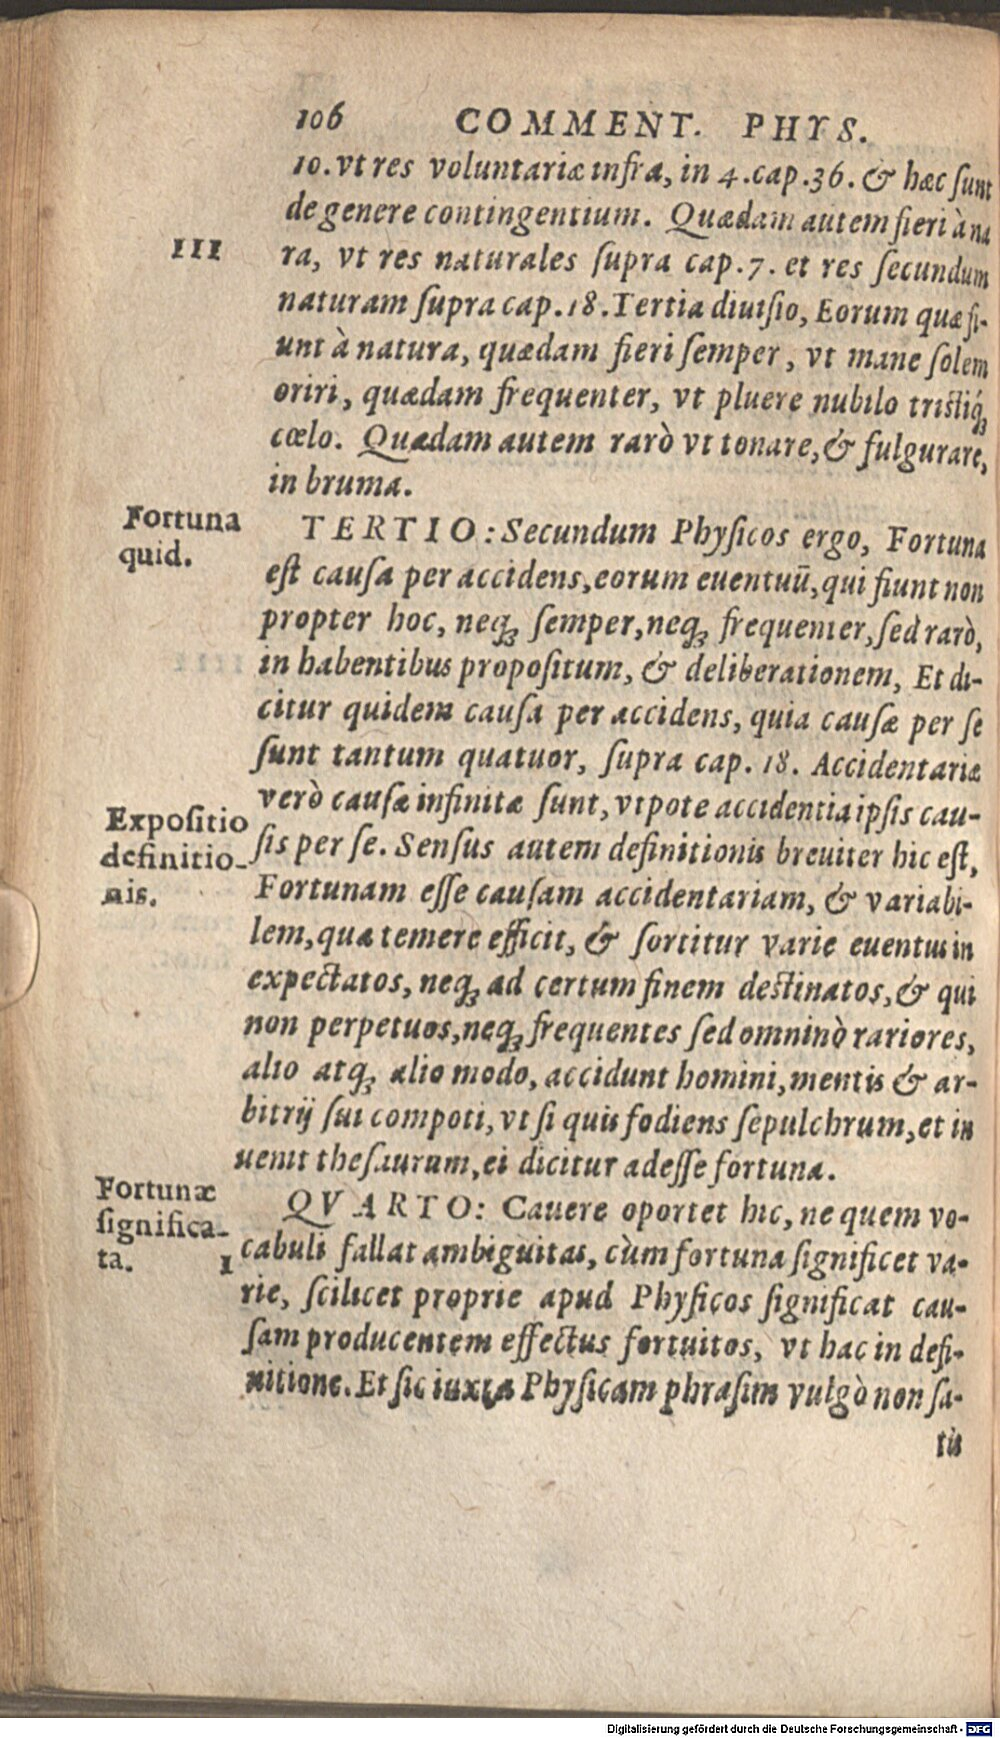 106 COMMENT. PHYS.
10. vt res voluntariæ infra, in 4. cap. 36. & hæc ſunt
de genere contingentium. Quædam autem fieri à na
III
ra, vt res naturales ſupra cap. 7. et res ſecundum
naturam ſupra cap. 18. Tertia diuiſio, Eorum quæ fi-
unt à natura, quædam fieri ſemper, vt mane ſolem
oriri, quædam frequenter, vt pluere nubilo triſtiq́ꝫ
cœlo. Quædam autem rarò vt tonare, & fulgurare,
in bruma.
Fortuna
quid.
TERTIO: Secundum Phyſicos ergo, Fortuna
eſt cauſa per accidens, eorum euentuū, qui fiunt non
propter hoc, neqꝫ ſemper, neqꝫ frequenter, ſed rarò,
in habentibus propoſitum, & deliberationem, Et di-
citur quidem cauſa per accidens, quia cauſæ per ſe
ſunt tantum quatuor, ſupra cap. 18. Accidentariæ
verò cauſæ infinitæ ſunt, vtpote accidentia ipſis cau-
Expoſitio
definitio-
nis.
ſis per ſe. Senſus autem definitionis breuiter hic eſt,
Fortunam eſſe cauſam accidentariam, & variabi-
lem, quæ temere efficit, & ſortitur varie euentus in
expectatos, neqꝫ ad certum finem deſtinatos, & qui
non perpetuos, neqꝫ frequentes ſed omninò rariores,
alio atqꝫ alio modo, accidunt homini, mentis & ar-
bitrij ſui compoti, vt ſi quis fodiens ſepulchrum, et in
uenit theſaurum, ei dicitur adeſſe fortuna.
Fortunæ
ſignifica-
ta. I
QVARTO: Cauere oportet hic, ne quem vo-
cabuli fallat ambiguitas, cùm fortuna ſignificet va-
rie, ſcilicet proprie apud Phyſicos ſignificat cau-
ſam producentem effectus fortuitos, vt hac in defi-
nitione. Et ſic iuxta Phyſicam phraſim vulgò non ſa-
tis